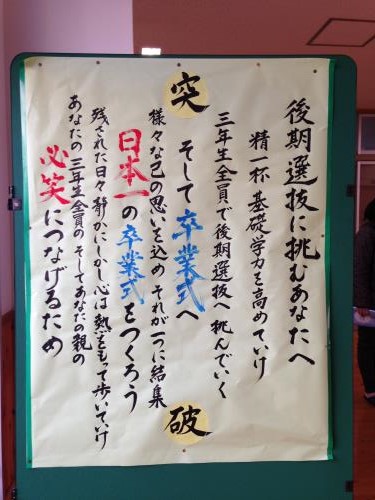 後期選抜に挑むあなたへ
精一杯 基礎学力を高めていけ
三年生全員で後期選抜へ 挑んでいく
突
破
そして 卒業式へ
様々な己の思いを込め それが一つに結集
日本一の卒業式をつくろう
残された日々 静かにしかし心は 熱をもって歩いていけ
あなたの 三年生全員の そしてあなたの親の
必笑につなげるため